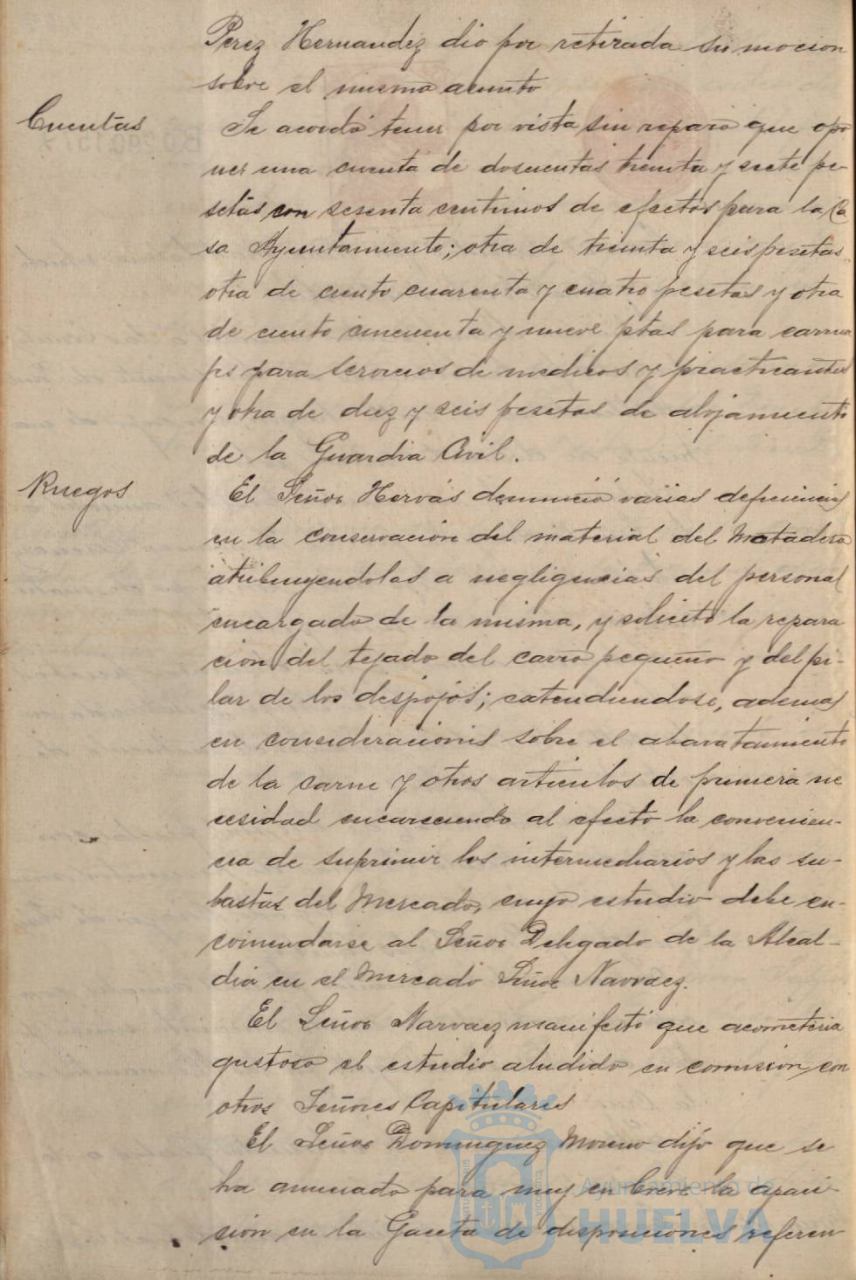 Perez Hernandez dio por retirada su mocion
sobre el mismo asunto
Cuentas
Se acordó tener por vista sin reparo que opo
ner una cuenta de doscuentas treinta y siete pe-
setas con sesenta centimos de efectos para la Ca
sa Ayuntamiento; otra de treinta y seis pesetas
otra de ciento cuarenta y cuatro pesetas y otra
de ciento cincuenta y nueve ptas para carrua
jes para servicios de medicos y practicantes
y otra de diez y seis pesetas de alojamiento
de la Guardia Civil.
Ruegos
El Señor Hervás denunció varias deficiencias
en la conservación del material del Matadero
atribuyendolas a negligencias del personal
encargado de la misma, y solicitó la repara
cion del tejado del carro pequeño y del pi-
lar de los despojos; extendiendose, ademas
en consideraciones sobre el abaratamiento
de la carne y otros articulos de primera ne
cesidad encareciendo al efecto la convenien-
cia de suprimir los intermediarios y las su-
bastas del Mercado, cuyo estudio debe en-
comendarse al Señor Delegado de la Alcal-
dia en el Mercado Señor Narvaez.
El Señor Narvaez manifestó que acometeria
gustoso el estudio aludido en comision con
otros Señores Capitulares
El Señor Dominguez Moreno dijo que se
ha anunciado para muy en breve la apari-
sión en la Gaceta de disposiciones referen
Ayuntamiento de
HUELVA